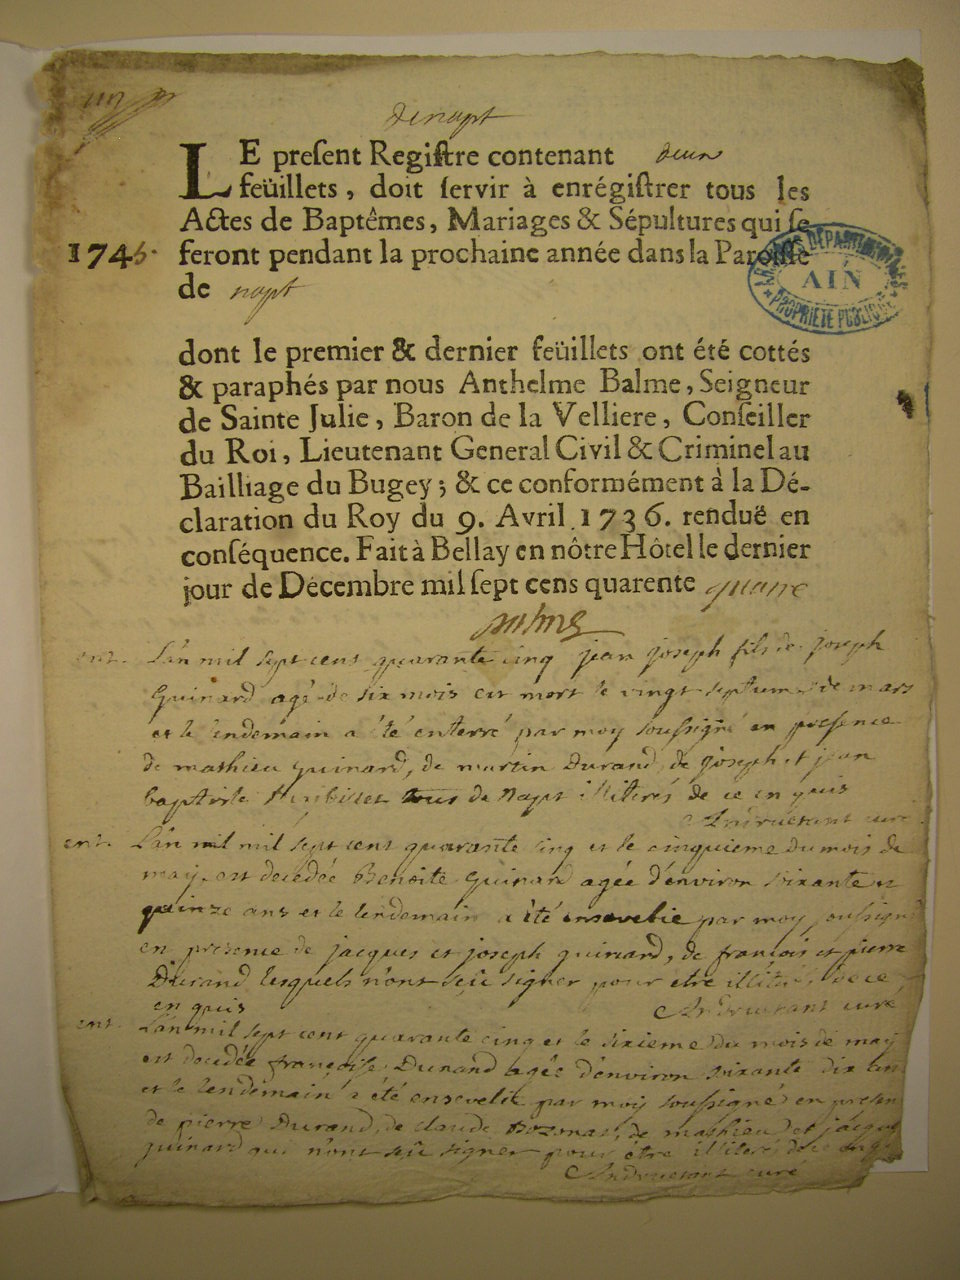 de napt
LE preſent Regiſtre contenant deux
feüillets, doit ſervir à enrégiſtrer tous les
Actes de Baptêmes, Mariages & Sépultures qui ſe
1745. feront pendant la prochaine année dans la Paroiſſe
ARCHIVES DEPARTEMENTALES
AIN
PROPRIETE PUBLIQUE
de napt
dont le premier & dernier feüillets ont été cottés
& paraphés par nous Anthelme Balme, Seigneur
de Sainte Julie, Baron de la Velliere, Conſeiller
du Roi, Lieutenant General Civil & Criminel au
Bailliage du Bugey; & ce conformément à la Dé-
claration du Roy du 9. Avril 1736. renduë en
conſéquence. Fait à Bellay en nôtre Hôtel le dernier
jour de Décembre mil ſept cens quarente quatre
Balme
ent. L'an mil sept cens quarante cinq jean joseph fils de joseph
Guinard agé de six mois est mort le vingt septieme de mars
et le lendemain a été enterré par moy soussigné en presence
de mathieu guinard, de martin Durand, de joseph et jean
baptiste tous de Napt illiterés de ce enquis
curé
ent. L'an mil mil sept cent quarante cinq et le cinquieme du mois de
may est decedée Benoite Guinard agée d'environ soixante et
quinze ans et le lendemain a été ensevelie par moy soussigné
en presence de jacques et joseph guinard, de francois et pierre
Durand lesquels n'ont seü signer pour etre illiterés de ce
enquis curé
ent. L'an mil sept cent quarante cinq et le sixieme du mois de may
est decedée françoise Durand agée d'environ soixante dix ans
et le lendemain a été ensevelie par moy soussigné en presen
de pierre Durand, de claude de mathieu et jacque
guinard qui n'ont seü signer pour être illiterés de ce enquis
curé